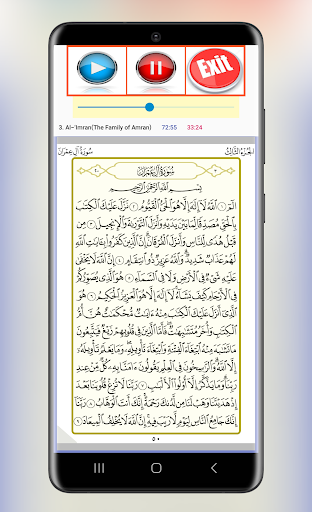 Exit
3. Al-'Imran(The Family of Amran) 72:55 33:24
الجزء الثالث سورة آل عمران
سُورَةُ آلِ عِمْرَانَ
بِسْمِ ٱللَّهِ ٱلرَّحْمَٰنِ ٱلرَّحِيمِ
الٓمٓ ١ ٱللَّهُ لَآ إِلَٰهَ إِلَّا هُوَ ٱلْحَىُّ ٱلْقَيُّومُ ٢ نَزَّلَ عَلَيْكَ ٱلْكِتَٰبَ
بِٱلْحَقِّ مُصَدِّقًا لِّمَا بَيْنَ يَدَيْهِ وَأَنزَلَ ٱلتَّوْرَىٰةَ وَٱلْإِنجِيلَ ٣ مِن
قَبْلُ هُدًى لِّلنَّاسِ وَأَنزَلَ ٱلْفُرْقَانَ إِنَّ ٱلَّذِينَ كَفَرُوا۟ بِـَٔايَٰتِ ٱللَّهِ
لَهُمْ عَذَابٌ شَدِيدٌ وَٱللَّهُ عَزِيزٌ ذُو ٱنتِقَامٍ ٤ إِنَّ ٱللَّهَ لَا يَخْفَىٰ
عَلَيْهِ شَىْءٌ فِى ٱلْأَرْضِ وَلَا فِى ٱلسَّمَآءِ ٥ هُوَ ٱلَّذِى يُصَوِّرُكُمْ
فِى ٱلْأَرْحَامِ كَيْفَ يَشَآءُ لَآ إِلَٰهَ إِلَّا هُوَ ٱلْعَزِيزُ ٱلْحَكِيمُ ٦ هُوَ ٱلَّذِىٓ
أَنزَلَ عَلَيْكَ ٱلْكِتَٰبَ مِنْهُ ءَايَٰتٌ مُّحْكَمَٰتٌ هُنَّ أُمُّ
ٱلْكِتَٰبِ وَأُخَرُ مُتَشَٰبِهَٰتٌ فَأَمَّا ٱلَّذِينَ فِى قُلُوبِهِمْ زَيْغٌ فَيَتَّبِعُونَ
مَا تَشَٰبَهَ مِنْهُ ٱبْتِغَآءَ ٱلْفِتْنَةِ وَٱبْتِغَآءَ تَأْوِيلِهِۦ وَمَا يَعْلَمُ تَأْوِيلَهُۥٓ
إِلَّا ٱللَّهُ وَٱلرَّٰسِخُونَ فِى ٱلْعِلْمِ يَقُولُونَ ءَامَنَّا بِهِۦ كُلٌّ مِّنْ عِندِ
رَبِّنَا وَمَا يَذَّكَّرُ إِلَّآ أُو۟لُوا۟ ٱلْأَلْبَٰبِ ٧ رَبَّنَا لَا تُزِغْ قُلُوبَنَا بَعْدَ
إِذْ هَدَيْتَنَا وَهَبْ لَنَا مِن لَّدُنكَ رَحْمَةً إِنَّكَ أَنتَ ٱلْوَهَّابُ ٨ رَبَّنَآ
إِنَّكَ جَامِعُ ٱلنَّاسِ لِيَوْمٍ لَّا رَيْبَ فِيهِ إِنَّ ٱللَّهَ لَا يُخْلِفُ ٱلْمِيعَادَ ٩
٥٠